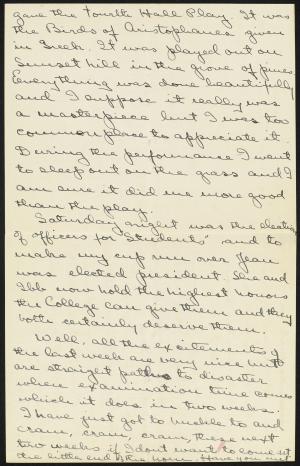 gave the Fourth Hall Play. It was
the Birds of Aristophanes given
in Greek. It was played out on
Sunset hill in the grove of pines.
Everything was done beautifully
and I suppose it really was
a masterpiece but I was too
commonplace to appreciate it.
During the performance I went
to sleep out on the grass and I
am sure it did me more good
than the play.
Saturday night was the election
of officers for "Students" and to
make my cup run over Jean
was elected president. She and
Ibb now hold the highest honors
the College can give them and they
both certainly deserve them.
Well, all the excitements of
the last week are very nice but
are straight paths to disaster
when examination time comes
which it does in two weeks.
I have just got to buckle to and
cram, cram, cram, these next
two weeks if I don't want to come out
the little end of the horn. Have you met